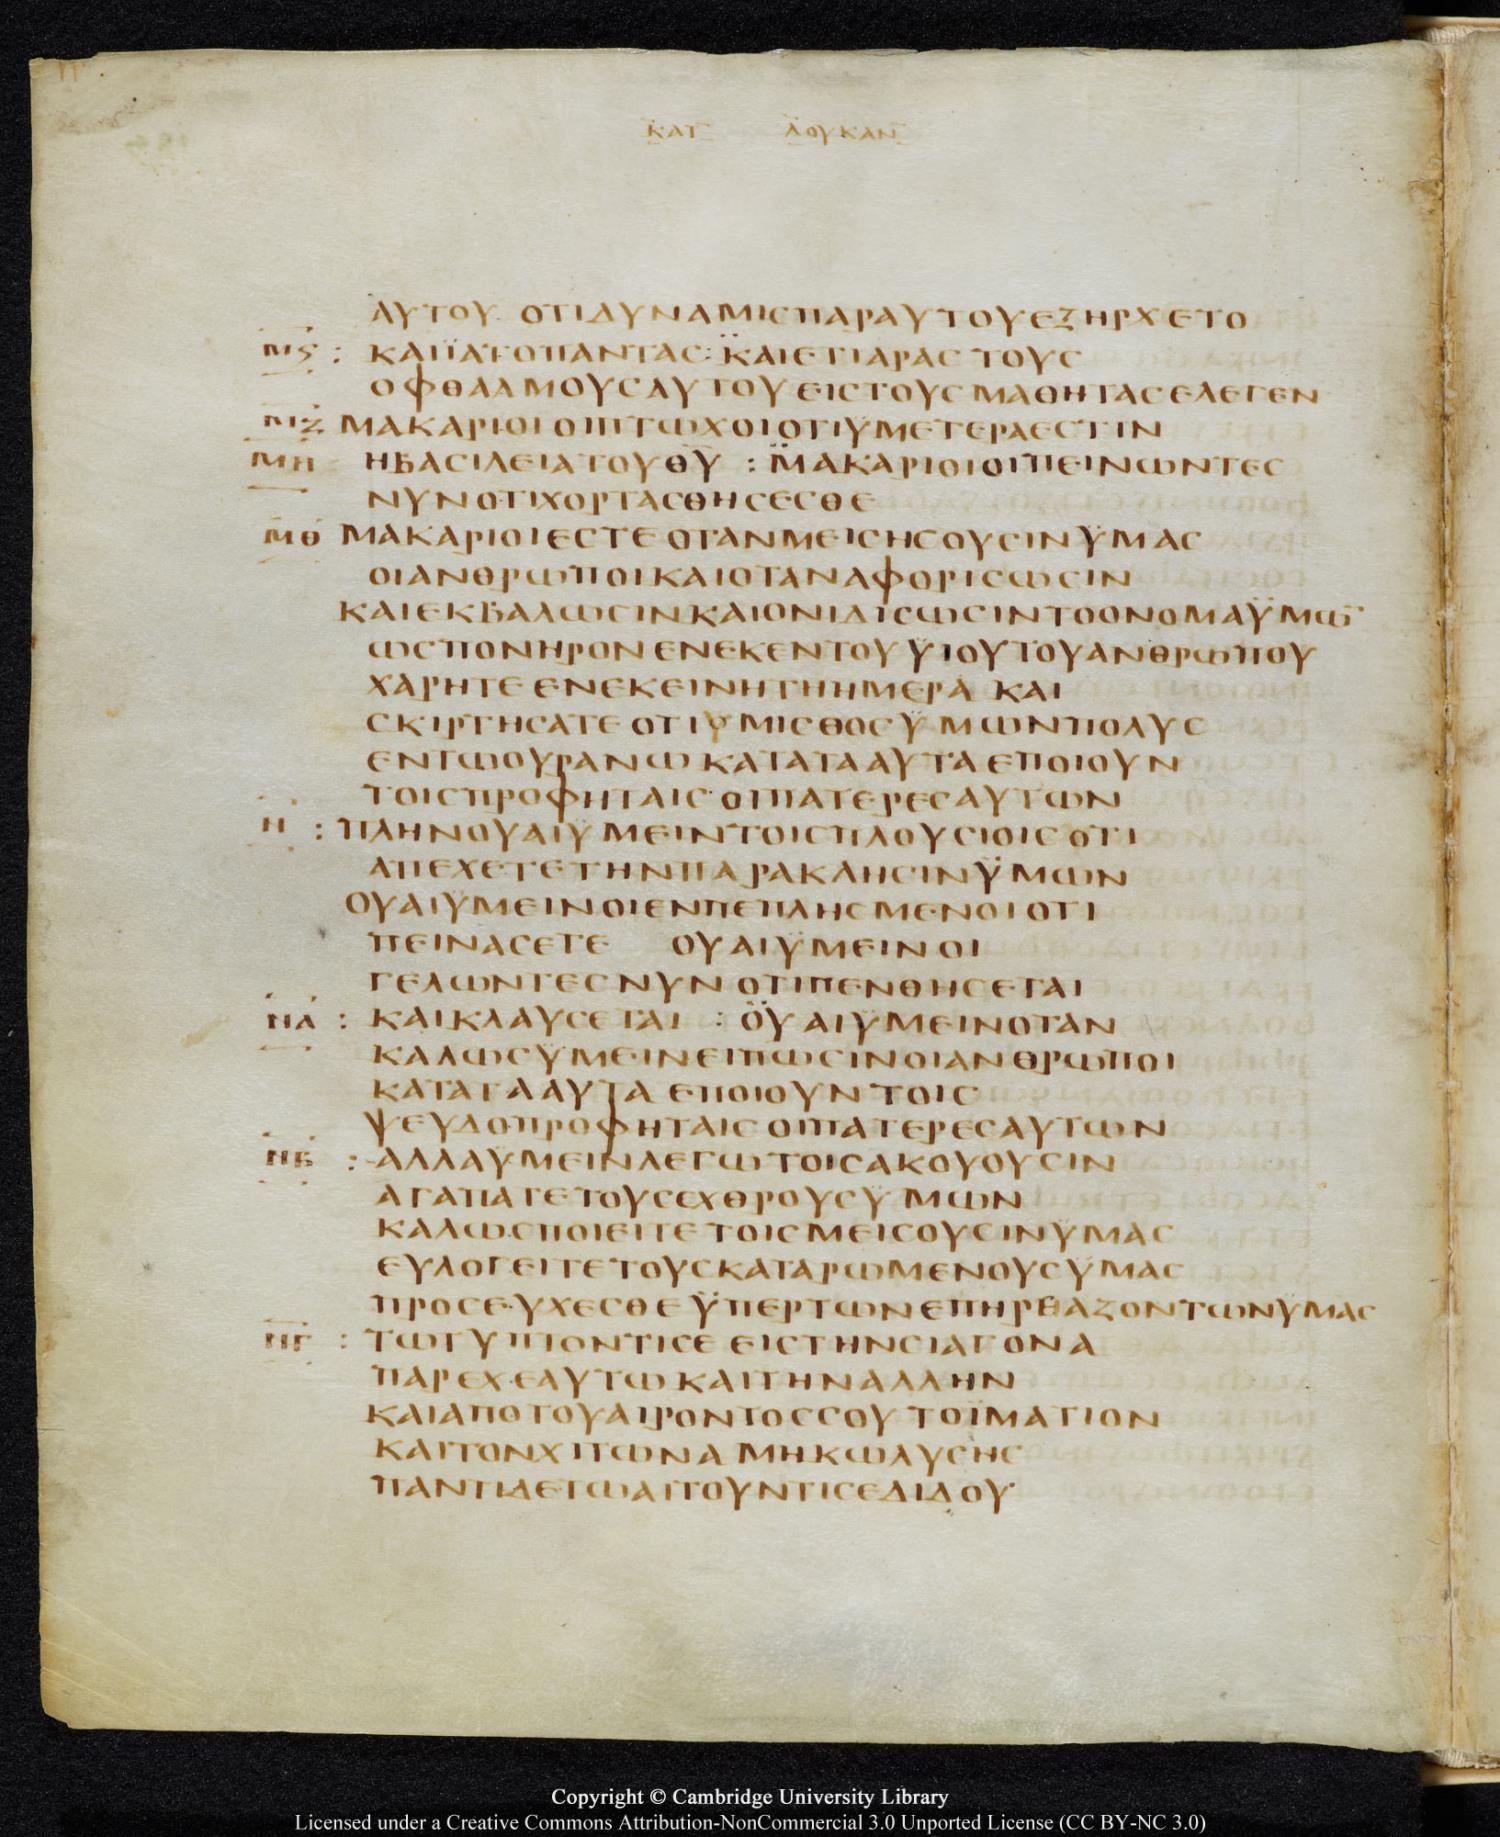 ΚΑΤ ΛΟΥΚΑΝ
ΑΥΤΟΥ ΟΤΙΔΥΝΑΜΙΣΠΑΡΑΥΤΟΥΕΞΗΡΧΕΤΟ
ΜϚ : ΚΑΙΪΑΤΟΠΑΝΤΑΣ : ΚΑΙΕΠΑΡΑΣ ΤΟΥΣ
ΟΦΘΑΛΜΟΥΣΑΥΤΟΥΕΙΣΤΟΥΣΜΑΘΗΤΑΣΕΛΕΓΕΝ
ΜΖ ΜΑΚΑΡΙΟΙΟΙΠΤΩΧΟΙΟΤΙΫΜΕΤΕΡΑΕΣΤΙΝ
ΜΗ ΗΒΑΣΙΛΕΙΑΤΟΥΘΥ : ΜΑΚΑΡΙΟΙΟΙΠΕΙΝΩΝΤΕΣ
ΝΥΝΟΤΙΧΟΡΤΑΣΘΗΣΕΣΘΕ
ΜΘ ΜΑΚΑΡΙΟΙΕΣΤΕΟΤΑΝΜΕΙΣΗΣΟΥΣΙΝΫΜΑΣ
ΟΙΑΝΘΡΩΠΟΙΚΑΙΟΤΑΝΑΦΟΡΙΣΩΣΙΝ
ΚΑΙΕΚΒΑΛΩΣΙΝΚΑΙΟΝΙΔΙΣΩΣΙΝΤΟΟΝΟΜΑΫΜΩ̅
ΩΣΠΟΝΗΡΟΝΕΝΕΚΕΝΤΟΥΫΙΟΥΤΟΥΑΝΘΡΩΠΟΥ
ΧΑΡΗΤΕΕΝΕΚΕΙΝΗΤΗΗΜΕΡΑ ΚΑΙ
ΣΚΙΡΤΗΣΑΤΕΟΤΙΟΜΙΣΘΟΣΫΜΩΝΠΟΛΥΣ
ΕΝΤΩΟΥΡΑΝΩΚΑΤΑΤΑΑΥΤΑΕΠΟΙΟΥΝ
ΤΟΙΣΠΡΟΦΗΤΑΙΣΟΙΠΑΤΕΡΕΣΑΥΤΩΝ
Ν : ΠΛΗΝΟΥΑΙΫΜΕΙΝΤΟΙΣΠΛΟΥΣΙΟΙΣΟΤΙ
ΑΠΕΧΕΤΕΤΗΝΠΑΡΑΚΛΗΣΙΝΫΜΩΝ
ΟΥΑΙΫΜΕΙΝΟΙΕΝΠΕΠΛΗΣΜΕΝΟΙΟΤΙ
ΠΕΙΝΑΣΕΤΕ ΟΥΑΙΫΜΕΙΝΟΙ
ΓΕΛΩΝΤΕΣΝΥΝΟΤΙΠΕΝΘΗΣΕΤΑΙ
ΝΑ : ΚΑΙΚΛΑΥΣΕΤΑΙ : ΟΥΑΙΫΜΕΙΝΟΤΑΝ
ΚΑΛΩΣΫΜΕΙΝΕΙΠΩΣΙΝΟΙΑΝΘΡΩΠΟΙ
ΚΑΤΑΤΑΑΥΤΑΕΠΟΙΟΥΝΤΟΙΣ
ΨΕΥΔΟΠΡΟΦΗΤΑΙΣΟΙΠΑΤΕΡΕΣΑΥΤΩΝ
ΝΒ : ΑΛΛΑΫΜΕΙΝΛΕΓΩΤΟΙΣΑΚΟΥΟΥΣΙΝ
ΑΓΑΠΑΤΕΤΟΥΣΕΧΘΡΟΥΣΫΜΩΝ
ΚΑΛΩΣΠΟΙΕΙΤΕΤΟΙΣΜΕΙΣΟΥΣΙΝΫΜΑΣ
ΕΥΛΟΓΕΙΤΕΤΟΥΣΚΑΤΑΡΩΜΕΝΟΥΣΫΜΑΣ
ΠΡΟΣΕΥΧΕΣΘΕΫΠΕΡΤΩΝΕΠΗΡΕΑΖΟΝΤΩΝΫΜΑΣ
ΝΓ : ΤΩΤΥΠΤΟΝΤΙΣΕΕΙΣΤΗΝΣΙΑΓΟΝΑ
ΠΑΡΕΧΕΑΥΤΩΚΑΙΤΗΝΑΛΛΗΝ
ΚΑΙΑΠΟΤΟΥΑΙΡΟΝΤΟΣΣΟΥΤΟΪΜΑΤΙΟΝ
ΚΑΙΤΟΝΧΙΤΩΝΑΜΗΚΩΛΥΣΗΣ
ΠΑΝΤΙΔΕΤΩΑΙΤΟΥΝΤΙΣΕΔΙΔΟΥ
Copyright © Cambridge University Library
Licensed under a Creative Commons Attribution-NonCommercial 3.0 Unported License (CC BY-NC 3.0)